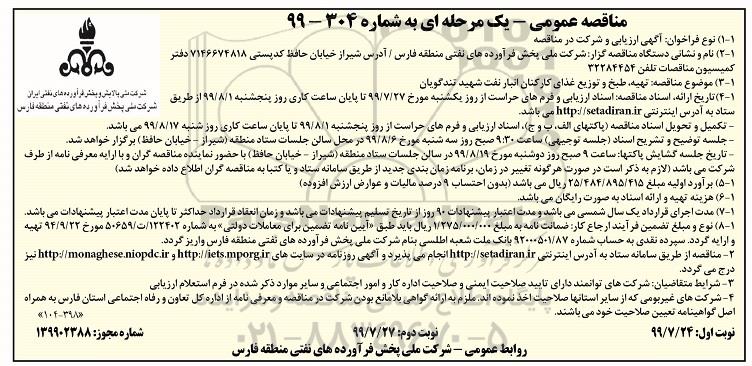 مناقصه عمومی – یک مرحله ای به شماره ۳۰۴ – ۹۹
شرکت ملی پالایش و پخش فرآورده های نفتی ایران
شرکت ملی پخش فرآورده های نفتی منطقه فارس
۱-۱) نوع فراخوان: آگهی ارزیابی و شرکت در مناقصه
۲-۱) نام و نشانی دستگاه مناقصه گزار: شرکت ملی پخش فرآورده های نفتی منطقه فارس / آدرس شیراز خیابان حافظ کدپستی ۷۱۴۶۶۷۴۸۱۸ دفتر
کمیسیون مناقصات تلفن ۳۲۲۸۴۴۵۴
۳-۱) موضوع مناقصه: تهیه، طبخ و توزیع غذای کارکنان انبار نفت شهید تندگویان
۴-۱) تاریخ ارائه، اسناد مناقصه: اسناد ارزیابی و فرم های حراست از روز یکشنبه مورخ ۹۹/۷/۲۷ تا پایان ساعت کاری روز پنجشنبه ۹۹/۸/۱ از طریق
ستاد به آدرس اینترنتی http://setadiran.ir می باشد.
- تکمیل و تحویل اسناد مناقصه (پاکتهای الف، ب و ج)، اسناد ارزیابی و فرم های حراست از روز پنجشنبه ۹۹/۸/۱ تا پایان ساعت کاری روز شنبه ۹۹/۸/۱۷ می باشد.
- جلسه توضیح و تشریح اسناد (جلسه توجیهی) ساعت ۹:۳۰ صبح روز سه شنبه مورخ ۹۹/۸/۶ در محل سالن جلسات ستاد منطقه (شیراز – خیابان حافظ) برگزار خواهد شد.
- تاریخ جلسه گشایش پاکتها: ساعت ۹ صبح روز دوشنبه مورخ ۹۹/۸/۱۹ در سالن جلسات ستاد منطقه (شیراز – خیابان حافظ) با حضور نماینده مناقصه گران و با ارایه معرفی نامه از طرف
شرکت می باشد (لازم به ذکر است در صورت هرگونه تغییر در زمان، برنامه زمان بندی جدید از طریق سامانه ستاد و یا کتبا به مناقصه گران اطلاع داده خواهد شد)
۵-۱) برآورد اولیه مبلغ ۲۵/۴۸۴/۸۹۵/۴۱۵ ریال می باشد (بدون احتساب ۹ درصد مالیات و عوارض ارزش افزوده)
۶-۱) هزینه تهیه و ارائه اسناد به صورت رایگان می باشد.
۷-۱) مدت اجرای قرارداد یک سال شمسی می باشد و مدت اعتبار پیشنهادات ۹۰ روز از تاریخ تسلیم پیشنهادات می باشد و زمان انعقاد قرارداد حداکثر تا پایان مدت اعتبار پیشنهادات می باشد.
۸-۱) نوع و مبلغ تضمین فرآیند ارجاع کار: ضمانت نامه به مبلغ ۱/۲۷۵/۰۰۰/۰۰۰ ریال باید طبق «آیین نامه تضمین برای معاملات دولتی» به شماره ۱۲۳۴۰۲/ت۵۰۶۵۹ مورخ ۹۴/۹/۲۲ تهیه
و ارایه گردد. سپرده نقدی به حساب شماره ۹۲۰۰۰۵۰۱/۸۷ بانک ملت شعبه اطلسی بنام شرکت ملی پخش فرآورده های نفتی منطقه فارس واریز گردد.
۲- مناقصه از طریق سامانه ستاد به آدرس اینترنتی http://setadiran.ir انجام می پذیرد و آگهی روزنامه در سایت های http://iets.mporg.ir و http://monaghese.niopdc.ir نیز
درج می گردد.
۳- شرایط متقاضیان: شرکت های توانمند دارای تایید صلاحیت ایمنی و صلاحیت اداره کار و امور اجتماعی و سایر موارد ذکر شده در فرم استعلام ارزیابی
۴- شرکت های غیربومی که از سایر استانها صلاحیت اخذ نموده اند، ملزم به ارائه گواهی بلامانع بودن شرکت در مناقصه و معرفی نامه از اداره کل تعاون و رفاه اجتماعی استان فارس به همراه
اصل گواهینامه تعیین صلاحیت خود می باشند.
«۱۰۴-۳۹۸»
نوبت اول: ۹۹/۷/۲۴
نوبت دوم: ۹۹/۷/۲۷
شماره مجوز: ۱۳۹۹۰۲۳۸۸
روابط عمومی – شرکت ملی پخش فرآورده های نفتی منطقه فارس